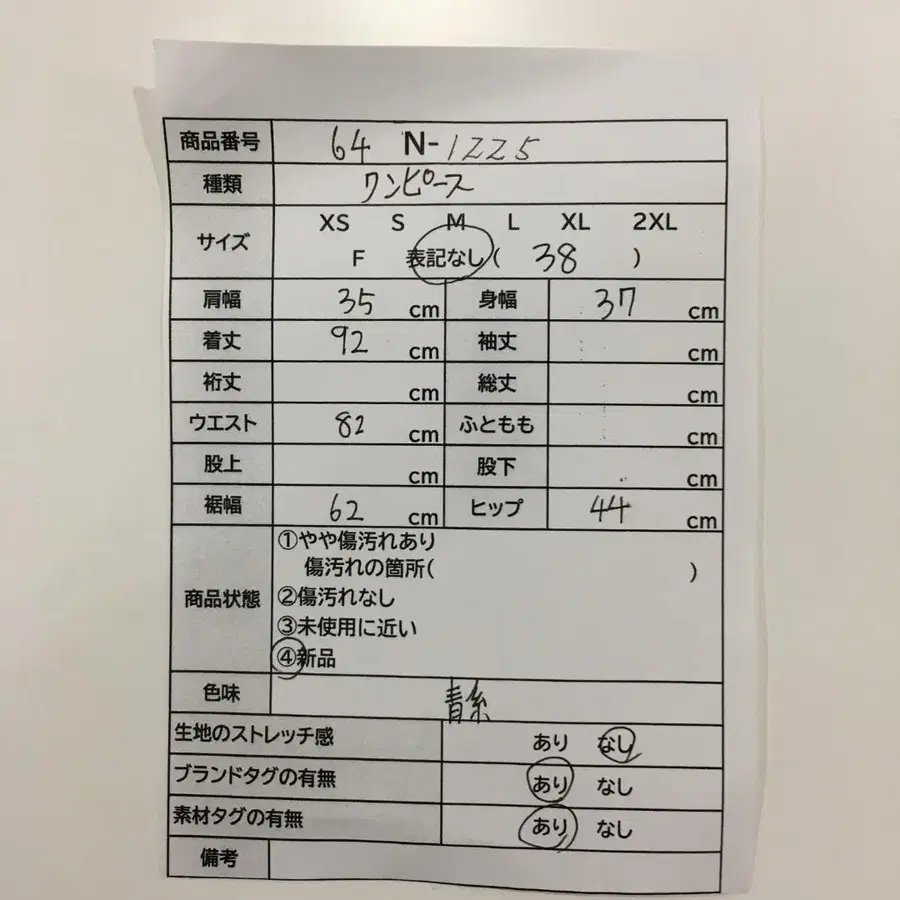 商品番号 64 N-1225
種類 ワンピース
サイズ XS S M L XL 2XL
F 表記なし( 38 )
肩幅 35 cm 身幅 37 cm
着丈 92 cm 袖丈 cm
裄丈 cm 総丈 cm
ウエスト 82 cm ふともも cm
股上 cm 股下 cm
裾幅 62 cm ヒップ 44 cm
商品状態 ①やや傷汚れあり
傷汚れの箇所( )
②傷汚れなし
③未使用に近い
④新品
色味 青糸
生地のストレッチ感 あり なし
ブランドタグの有無 あり なし
素材タグの有無 あり なし
備考